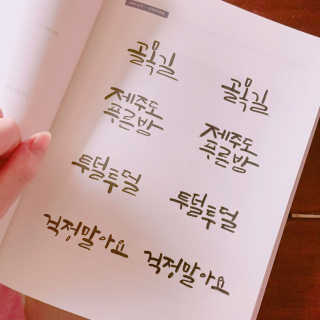 골목길 골목길
제주도 제주도
푸른밤 푸른밤
투덜투덜 투덜투덜
걱정말아요 걱정말아요